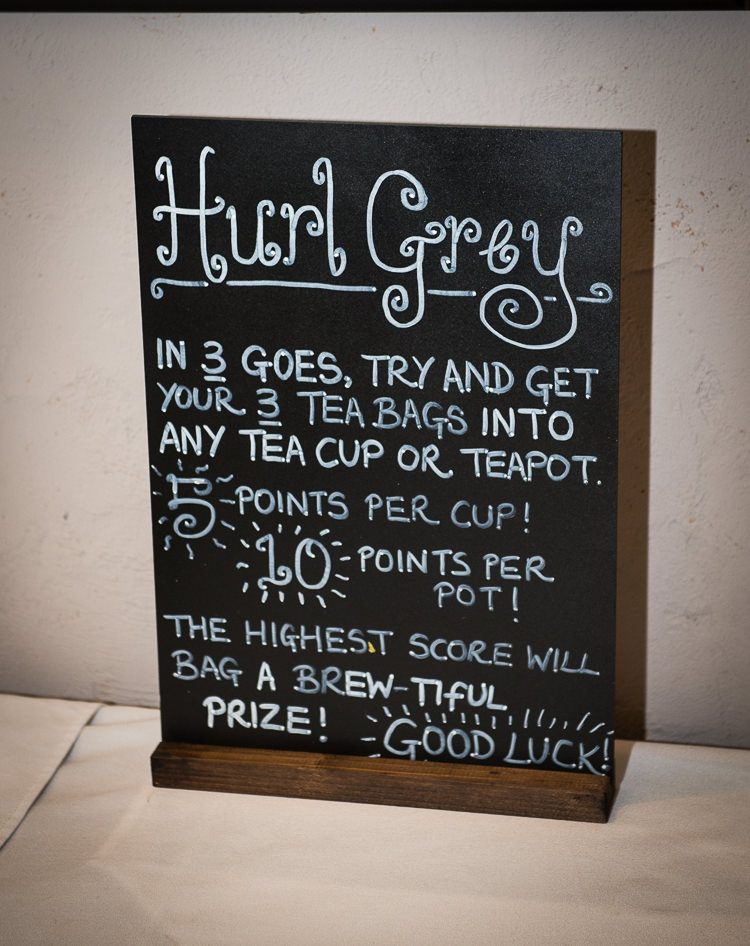 Hurl Grey
IN 3 GOES, TRY AND GET
YOUR 3 TEA BAGS INTO
ANY TEA CUP OR TEAPOT.
5 - POINTS PER CUP!
10 - POINTS PER
POT!
THE HIGHEST SCORE WILL
BAG A BREW-TIFUL
PRIZE! GOOD LUCK!